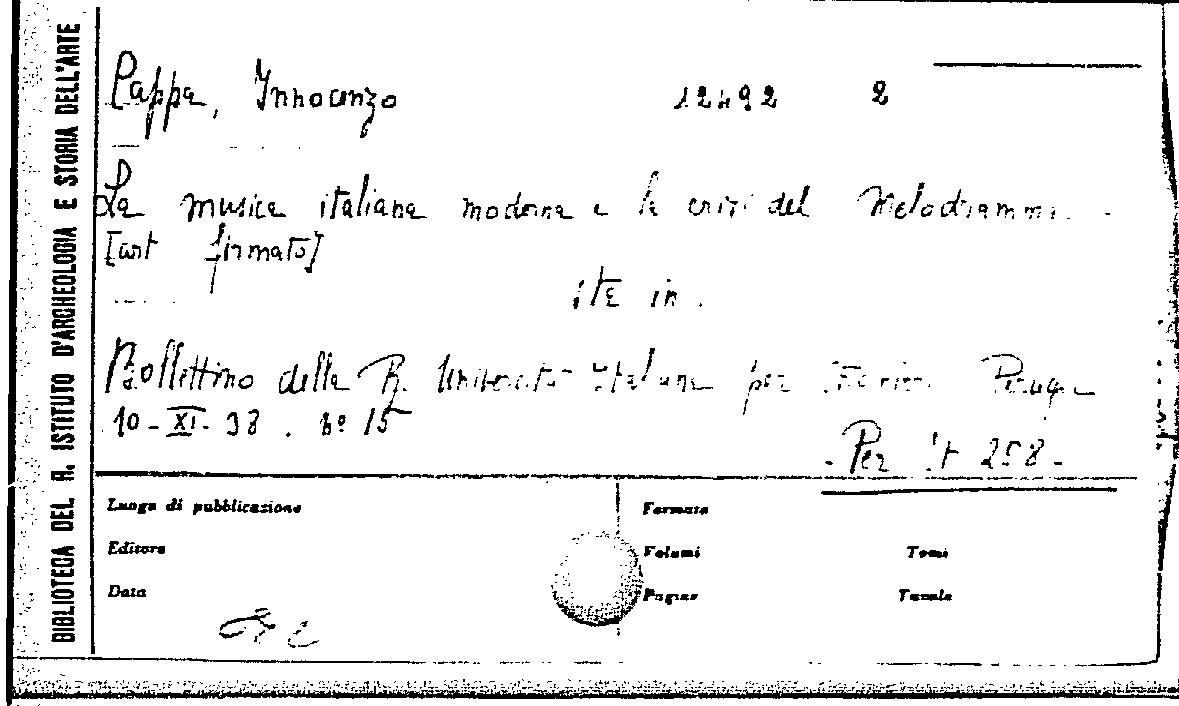 BIBLIOTECA DEL R. ISTITUTO D'ARCHEOLOGIA E STORIA DELL'ARTE
Pappa, Innocenzo 12492 2
La musica italiana moderna e la crisi del Melodramma.
[art firmato]
ste in.
Bollettino della R. Università Italiana per Stranieri Perugia
10-XI-38. nº 15
- Per It 258-
Luogo di pubblicazione
Formato
Editore
Volumi
Tomi
Data
Pagine
Tavole